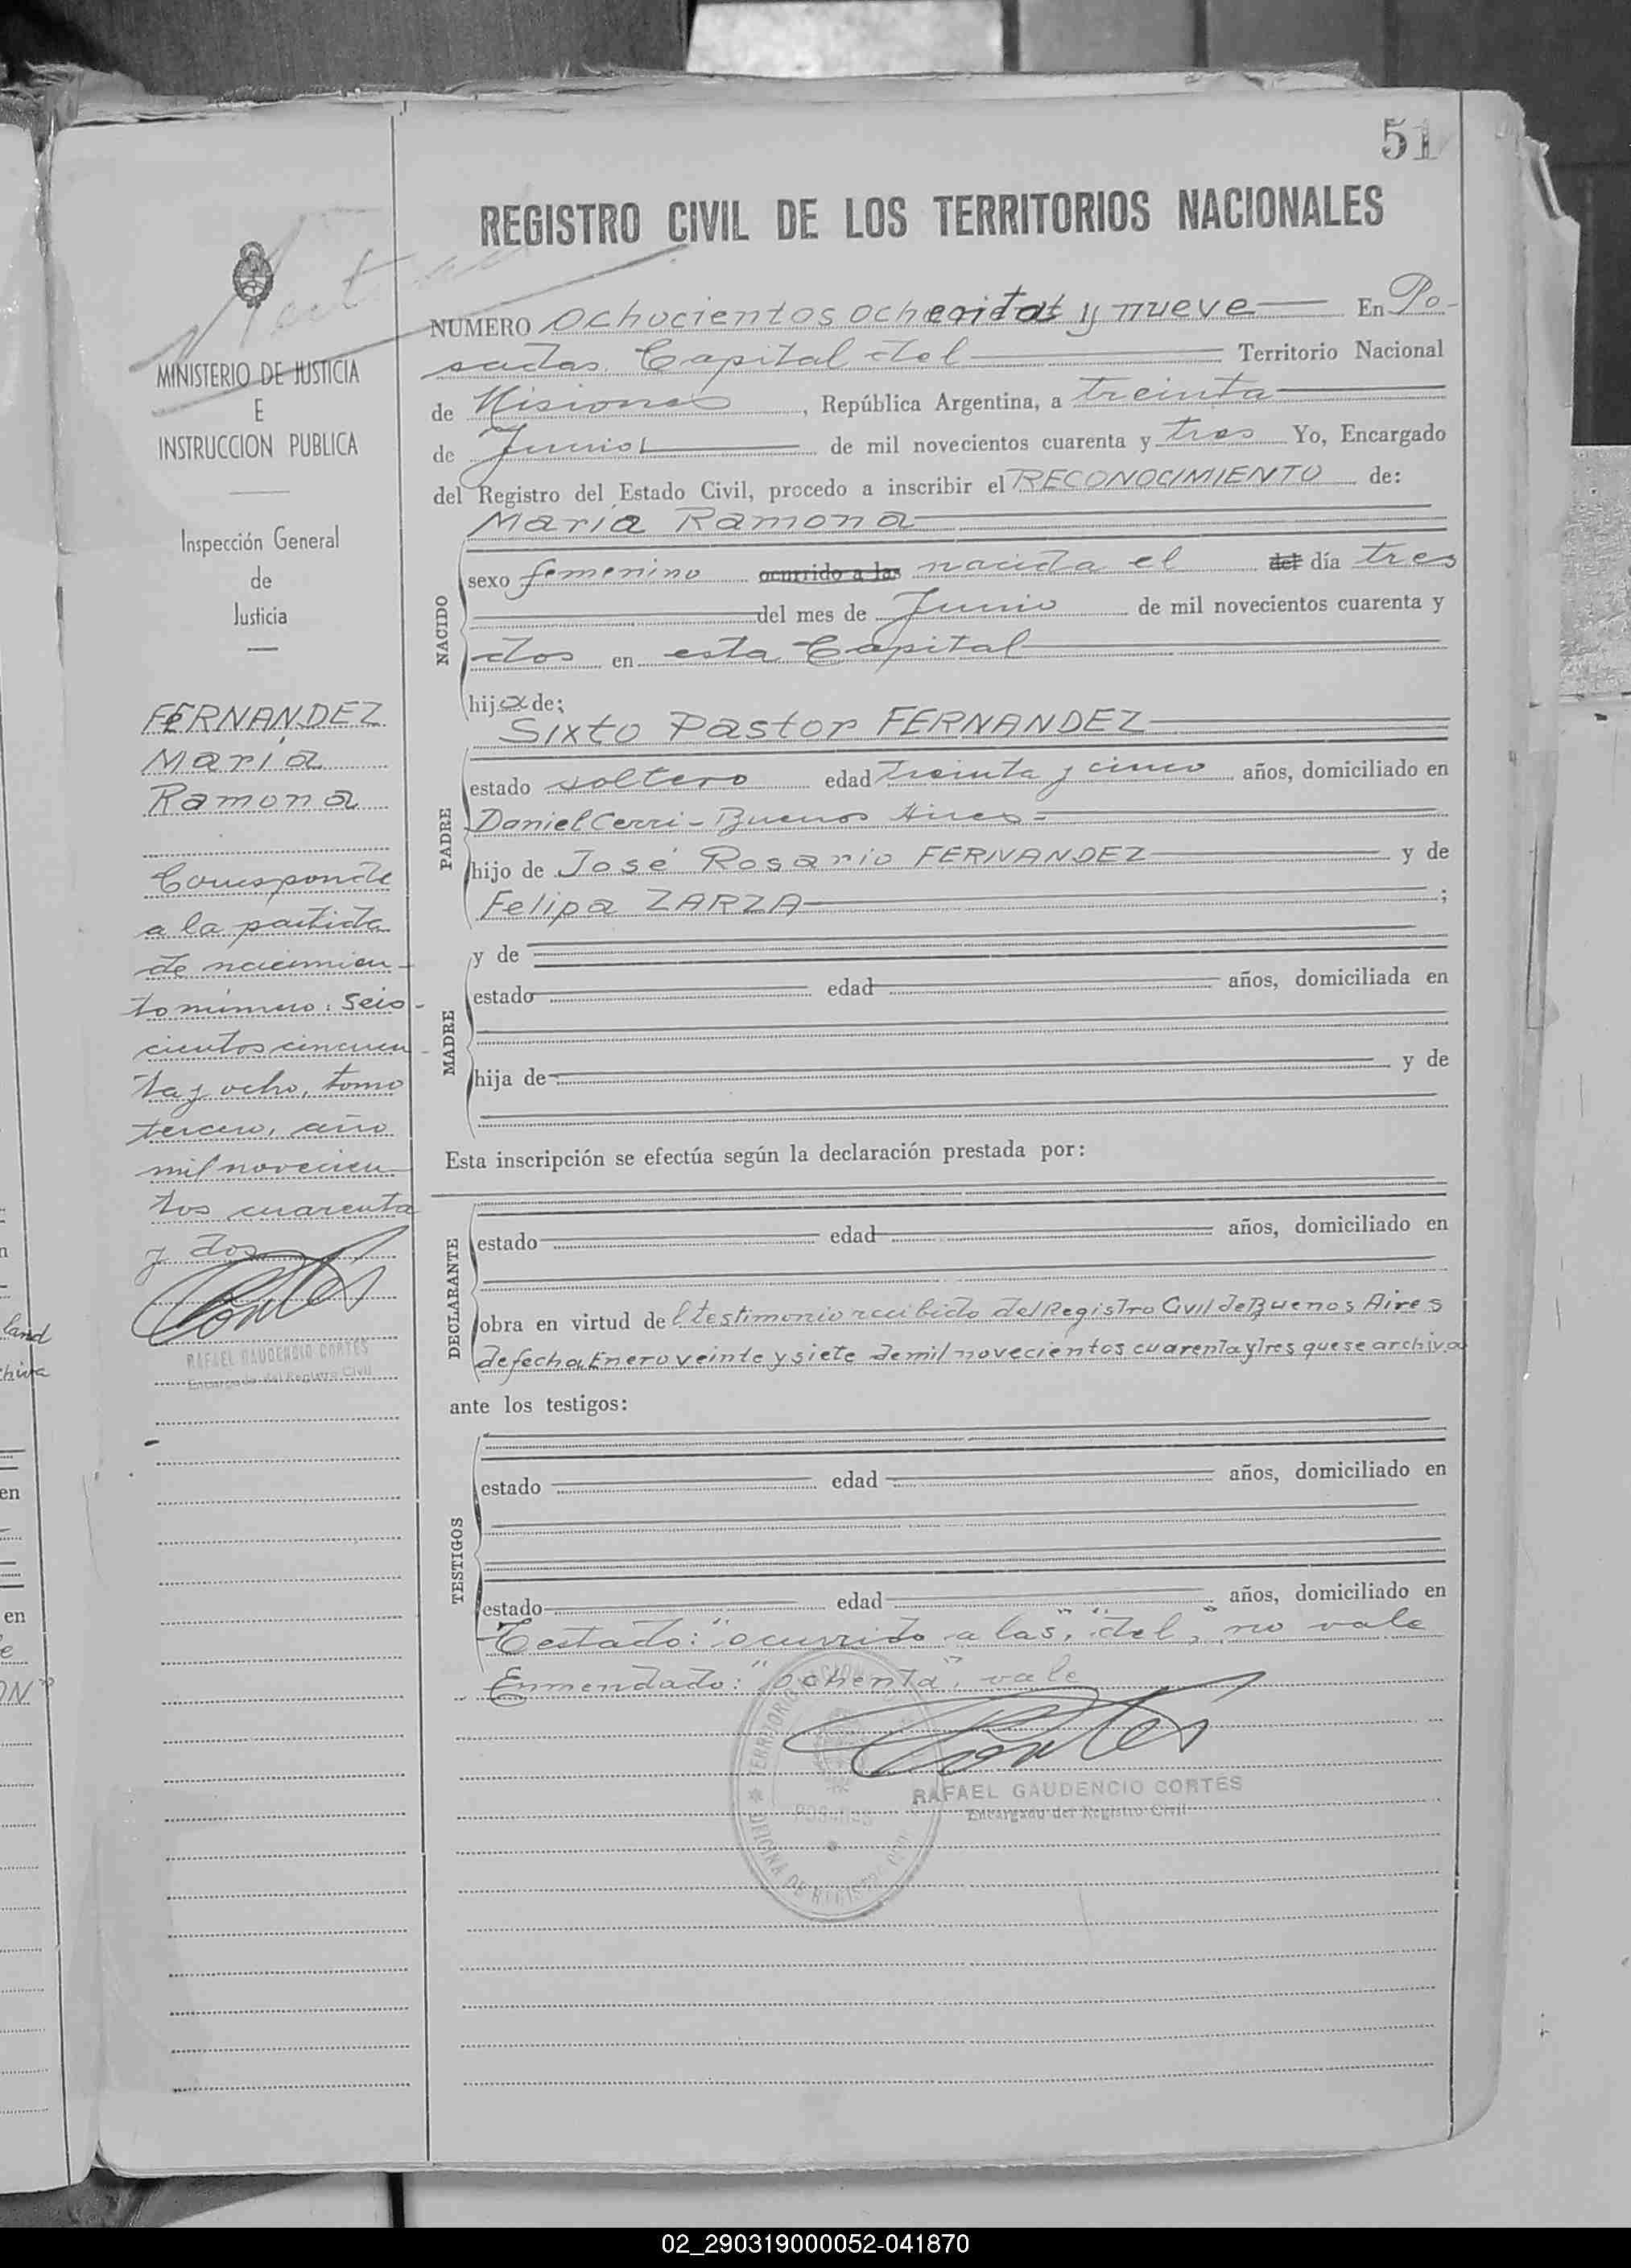 51
REGISTRO CIVIL DE LOS TERRITORIOS NACIONALES
MINISTERIO DE JUSTICIA
E
INSTRUCCION PUBLICA
Inspección General
de
Justicia
FERNANDEZ
María
Ramona
Corresponde
a la partida
de nacimien-
to número: seis-
cientos cincuen-
ta y ocho, tomo
tercero, año
mil novecien-
tos cuarenta
y dos
Cortes
RAFAEL GAUDENCIO CORTES
Encargado del Registro Civil
NUMERO ochocientos ochenta y nueve En Po-
sadas Capital del Territorio Nacional
de Misiones, República Argentina, a treinta
de Junio de mil novecientos cuarenta y tres Yo, Encargado
del Registro del Estado Civil, procedo a inscribir el RECONOCIMIENTO de:
NACIDO
María Ramona
sexo femenino ocurrido a las nacida el del día tres
del mes de Junio de mil novecientos cuarenta y
dos en esta Capital
hija de:
PADRE
Sixto Pastor FERNANDEZ
estado soltero edad treinta y cinco años, domiciliado en
Daniel Cerri - Buenos Aires =
hijo de José Rosario FERNANDEZ y de
Felipa ZARZA ;
MADRE
y de
estado edad años, domiciliada en
hija de y de
Esta inscripción se efectúa según la declaración prestada por:
DECLARANTE
estado edad años, domiciliado en
obra en virtud del testimonio recibido del Registro Civil de Buenos Aires
de fecha Enero veinte y siete de mil novecientos cuarenta y tres que se archiva
ante los testigos:
TESTIGOS
estado edad años, domiciliado en
estado edad años, domiciliado en
Testado: "ocurrido a las", "del", no vale
Enmendado: "ochenta", vale
Cortes
RAFAEL GAUDENCIO CORTES
Encargado del Registro Civil
POSADAS
OFICINA DE REGISTRO
land
chiva
en
en
02_290319000052-041870